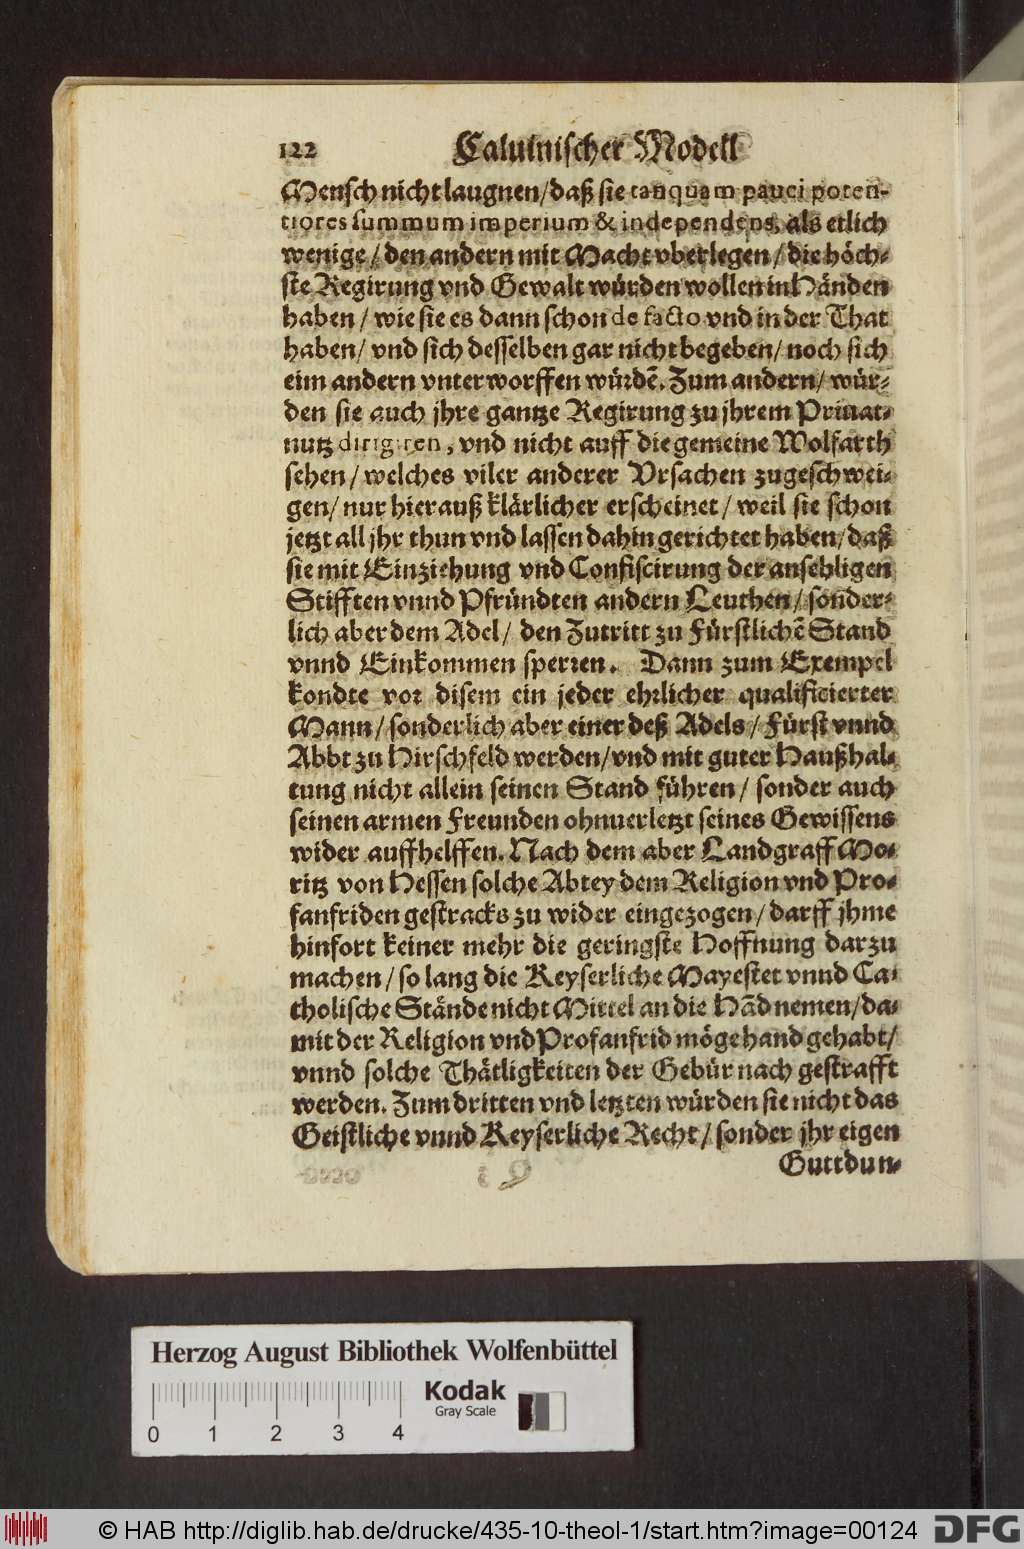 122 Caluinischer Modell
Mensch nicht laugnen/ daß sie tanquam pauci poten-
tiores summum imperium & independens, als etlich
wenige / den andern mit Macht vberlegen / die höch-
ste Regirung vnd Gewalt würden wollen in Händen
haben / wie sie es dann schon de facto vnd in der That
haben/ vnd sich desselben gar nicht begeben/ noch sich
eim andern vnterworffen würdē. Zum andern/ wür-
den sie auch jhre gantze Regirung zu jhrem Priuat-
nutz dirigiren, vnd nicht auff die gemeine Wolfarth
sehen / welches viler anderer Vrsachen zugeschwei-
gen/ nur hierauß klärlicher erscheinet / weil sie schon
jetzt all jhr thun vnd lassen dahin gerichtet haben/ daß
sie mit Einziehung vnd Confiscirung der ansehligen
Stifften vnnd Pfründten andern Leuthen / sonder-
lich aber dem Adel / den Zutritt zu Fürstlichē Stand
vnnd Einkommen sperren. Dann zum Exempel
kondte vor disem ein jeder ehrlicher qualificierter
Mann / sonderlich aber einer deß Adels / Fürst vnnd
Abbt zu Hirschfeld werden/ vnd mit guter Haußhal-
tung nicht allein seinen Stand führen / sonder auch
seinen armen Freunden ohnuerletzt seines Gewissens
wider auffhelffen. Nach dem aber Landgraff Mo-
ritz von Hessen solche Abtey dem Religion vnd Pro-
fanfriden gestracks zu wider eingezogen / darff jhme
hinfort keiner mehr die geringste Hoffnung darzu
machen / so lang die Keyserliche Mayestet vnnd Ca-
tholische Stände nicht Mittel an die Hād nemen/ da-
mit der Religion vnd Profanfrid möge hand gehabt/
vnnd solche Thätligkeiten der Gebür nach gestrafft
werden. Zum dritten vnd letzten würden sie nicht das
Geistliche vnnd Keyserliche Recht / sonder jhr eigen
Guttdun-
Herzog August Bibliothek Wolfenbüttel
Kodak
Gray Scale
0 1 2 3 4
© HAB http://diglib.hab.de/drucke/435-10-theol-1/start.htm?image=00124
DFG